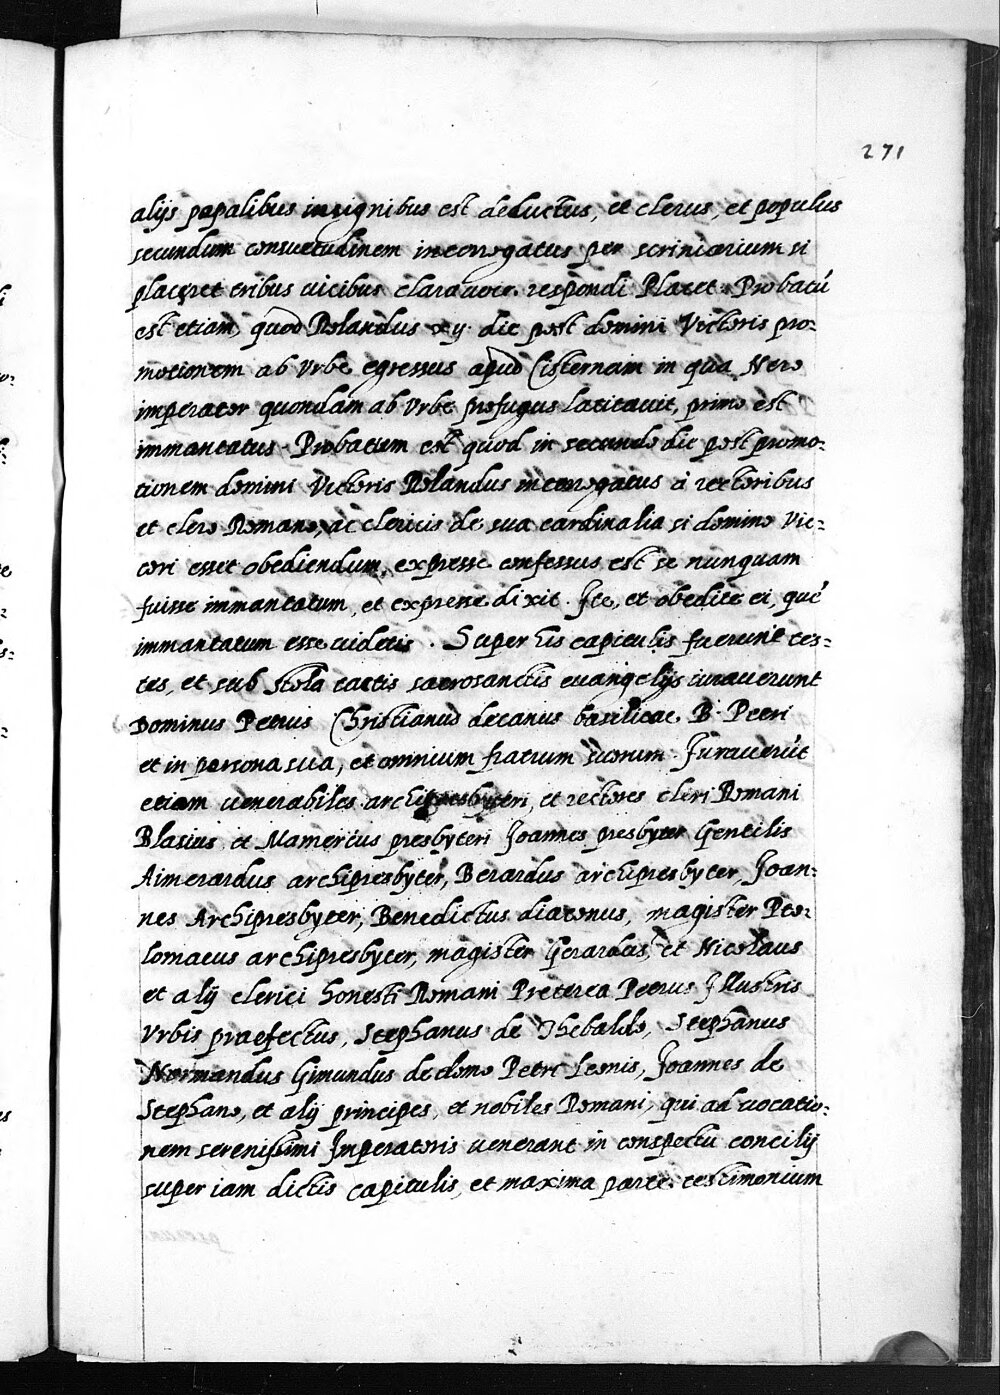 271
alijs papalibus insignibus est deductus, et clerus, et populus
secundum consuetudinem interrogatus per scriniarium si
placeret tribus vicibus clara voce respondi Placet. Probatū
est etiam, quod Rolandus xij. die post domini Victoris pro=
motionem ab Urbe egressus apud Cisternam in qua Nero
imperator quondam ab Urbe profugus latitavit, primo est
immantatus. Probatum est quod in secundo die post promo=
tionem domini Victoris Rolandus interrogatus à rectoribus
et clero Romano, ac clericis de sua cardinalia si domino Vic=
tori esset obediendum, expresse confessus est se nunquam
fuisse immantatum, et expresse dixit. Ite, et obedite ei, quē
immantatum esse videtis. Super his capitulis fuerunt tes=
tes, et sub stola tactis sacrosanctis evangelijs iuraverunt
Dominus Petrus Christianus decanus basilicae B. Petri
et in persona sua, et omnium fratrum suorum. Juraverūt
etiam venerabiles archipresbyteri, et rectores cleri Romani
Blasius, et Mamercus presbyteri Joannes presbyter Gentilis
Aimerardus archipresbyter, Berardus archipresbyter, Joan=
nes Archipresbyter, Benedictus diaconus, magister Pto=
lomaeus archipresbyter, magister Gerardus, et Nicolaus
et alij clerici honesti Romani Preterea Petrus Illustris
Urbis praefectus, Stephanus de Thebaldo, Stephanus
Normandus Gimundus de domo Petri Leonis, Joannes de
Stephano, et alij principes, et nobiles Romani, qui ad vocatio=
nem serenissimi Imperatoris venerant in conspectu concilij
super iam dictis capitulis, et maxima parte testimonium